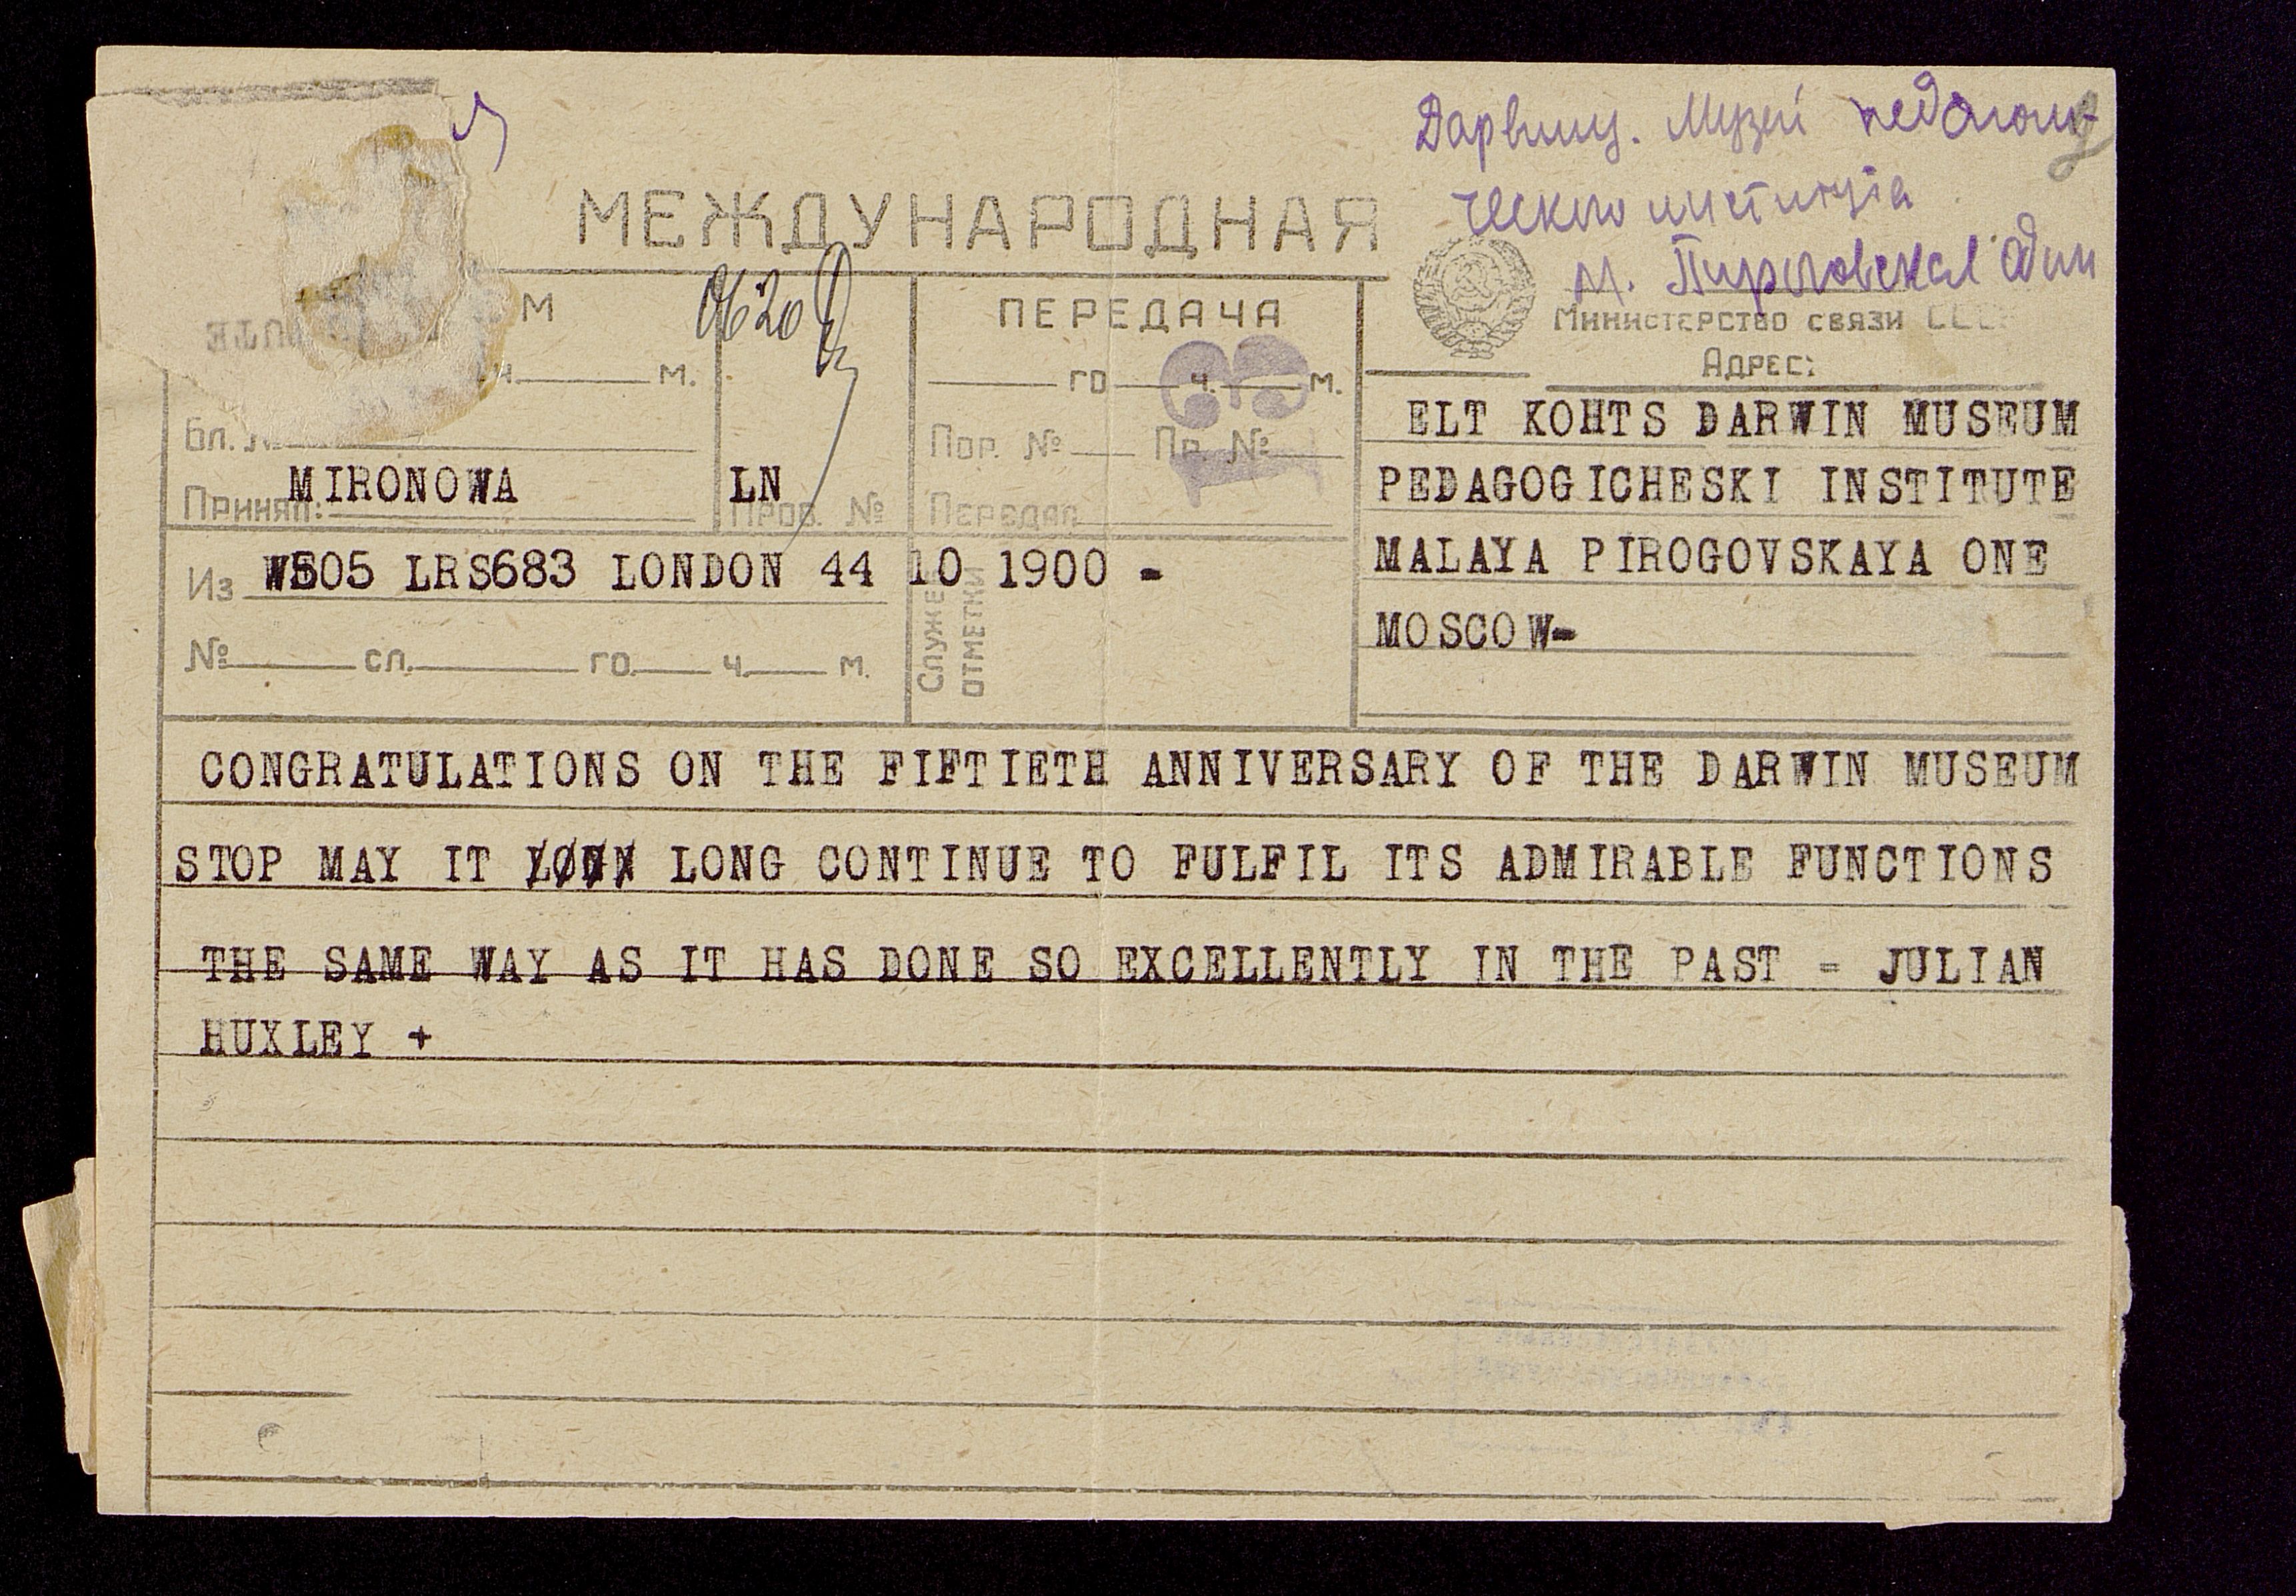 Дарвинц. Музей педагоги
ческого института
М. Пироговская один
МЕЖДУНАРОДНАЯ
0620
М
ч. м.
Бл. №
MIRONOWA
Принял:
LN
Пров. №
ПЕРЕДАЧА
го ч. м.
Пор. № Пр. №
Передал
Министерство связи СССР
Адрес:
ELT KOHTS DARWIN MUSEUM
PEDAGOGICHESKI INSTITUTE
MALAYA PIROGOVSKAYA ONE
MOSCOW-
Из W505 LRS683 LONDON 44 10 1900 -
№ сл. го. ч. м.
Служеб.
отметки
CONGRATULATIONS ON THE FIFTIETH ANNIVERSARY OF THE DARWIN MUSEUM
STOP MAY IT LONG CONTINUE TO FULFIL ITS ADMIRABLE FUNCTIONS
THE SAME WAY AS IT HAS DONE SO EXCELLENTLY IN THE PAST = JULIAN
HUXLEY +